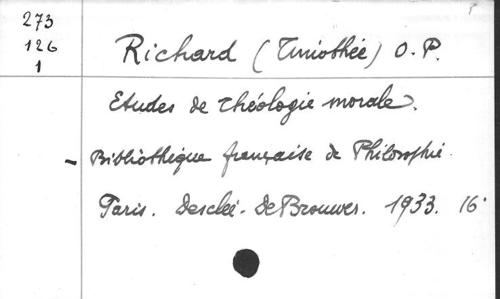 273
126
1
Richard (Timothée) O.P.
Etudes de théologie morale.
- Bibliothèque française de Philosophie.
Paris. Desclée-De Brouwer. 1933. 16°